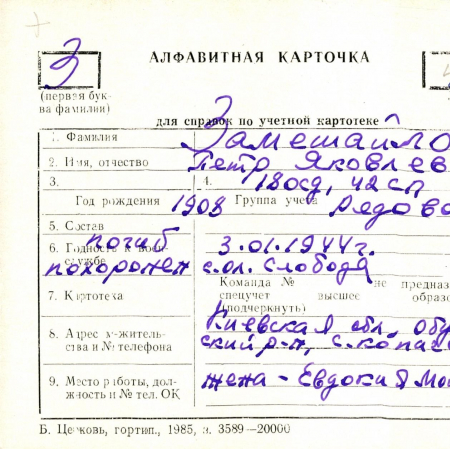 З
АЛФАВИТНАЯ КАРТОЧКА
(первая бук-
ва фамилии)
для справок по учетной картотеке
1. Фамилия Замешайло
2. Имя, отчество Петр Яковлев
3. 4. 180сд, 42сп
Год рождения 1908 Группа учета Рядово
5. Состав погиб 3.01.1944г.
6. Годность к
службе похоронен с.ол. Слобода
Команда № не предназ
7. Картотека спецучет высшее образо
(подчеркнуть)
Киевская обл. обу
8. Адрес житель-
ства и № телефона ский р-н, с.
9. Место работы, дол-
жность и № тел. ОК жена - Евдокия
Б. Церковь, гортип., 1985, з. 3589—20000